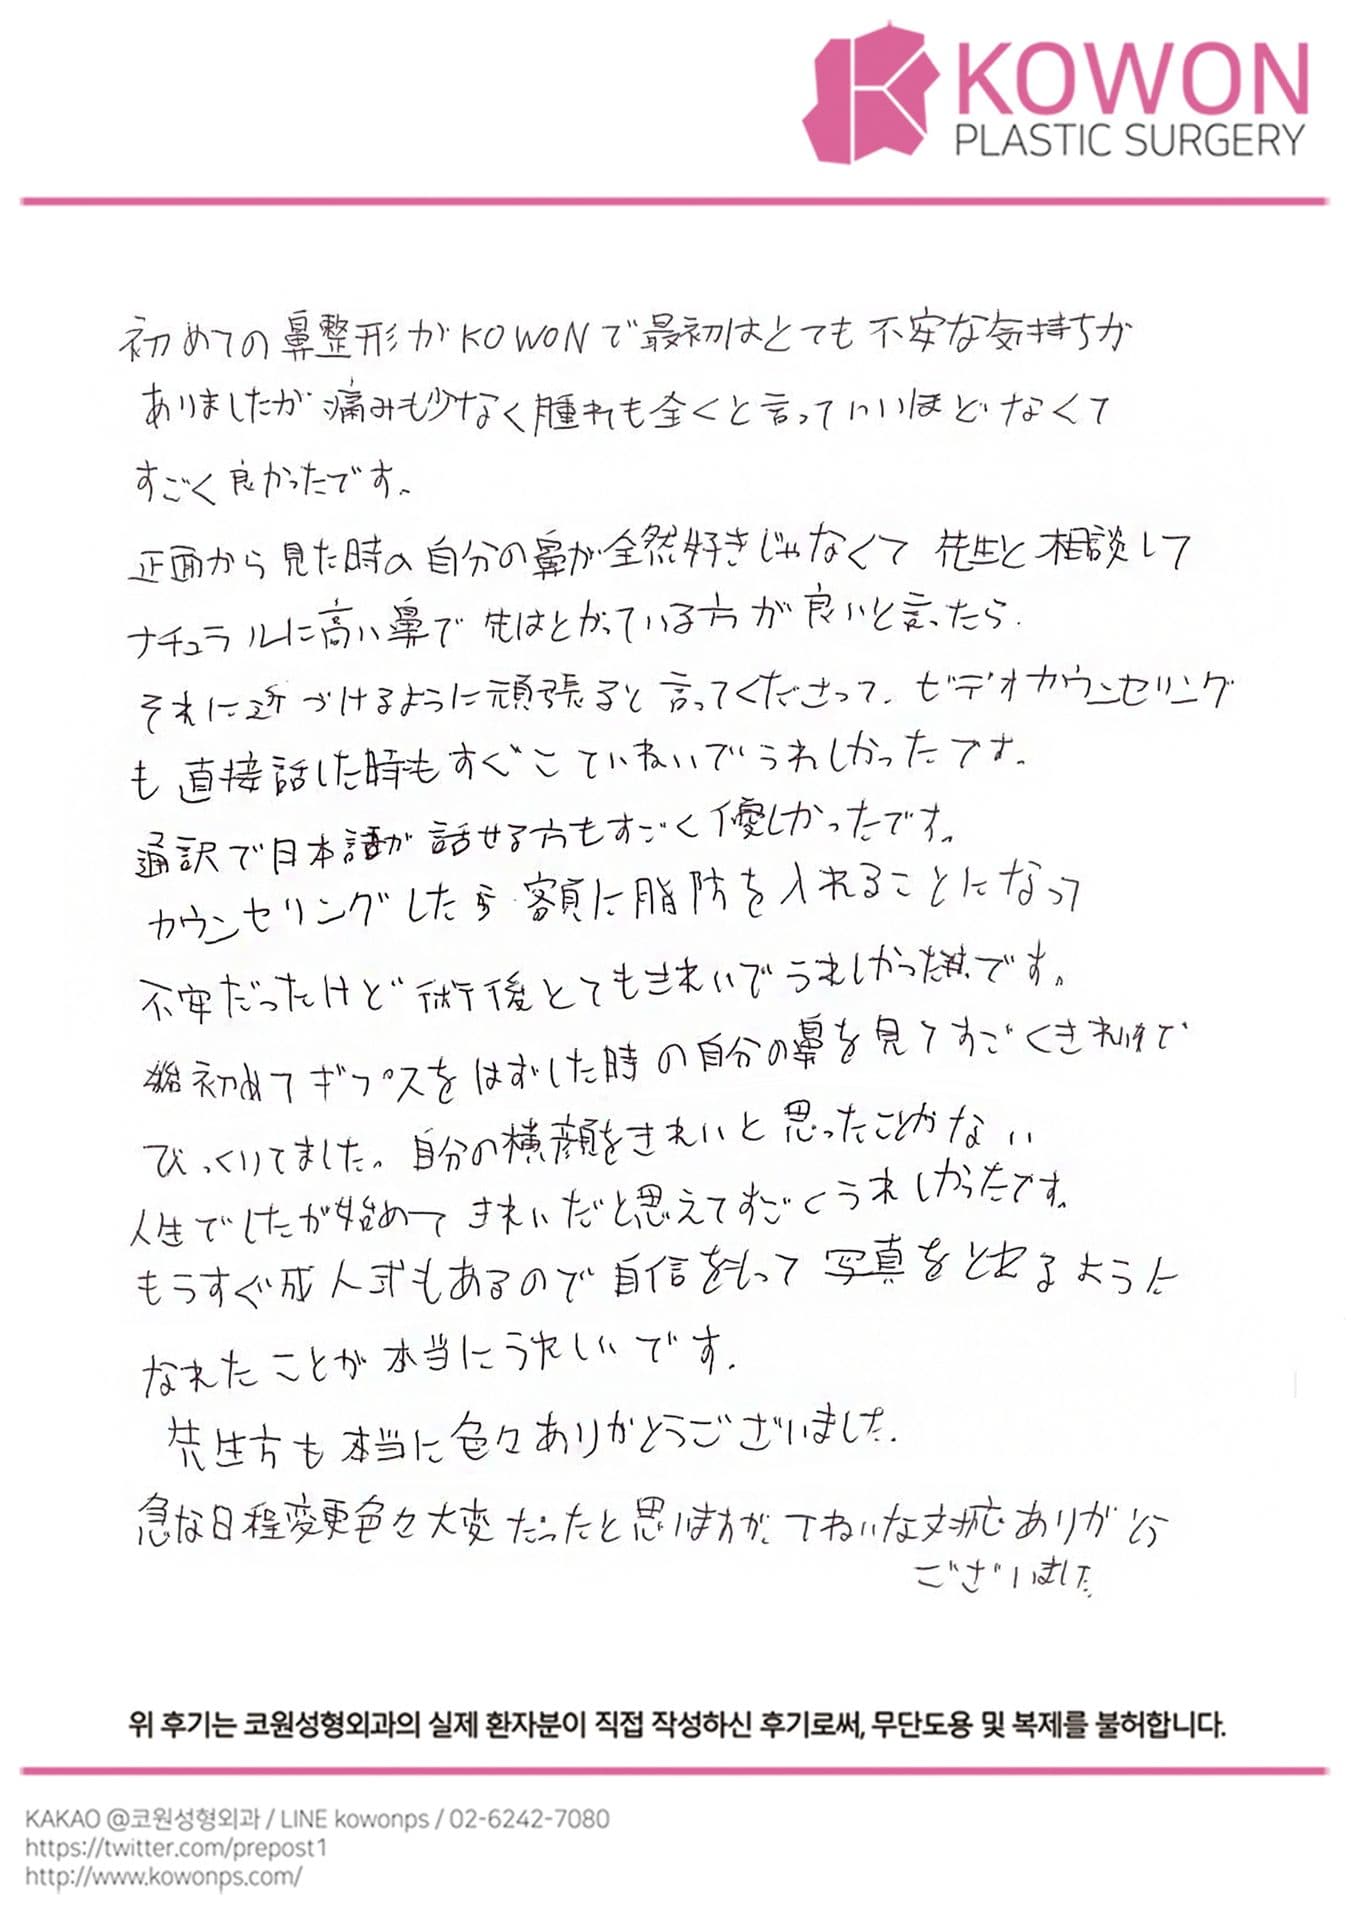 KOWON
PLASTIC SURGERY
初めての鼻整形がKOWONで最初はとても不安な気持ちが
ありましたが痛みも少なく腫れも全くと言っていいほどなくて
すごく良かったです。
正面から見た時の自分の鼻が全然好きじゃなくて 先生と相談して
ナチュラルに高い鼻で 先はとがっている方が良いと言ったら.
それに近づけるように頑張ると言ってくださって、ビデオカウンセリング
も直接話した時もすぐごていねいでうれしかったです。
通訳で日本語が話せる方もすごく優しかったです。
カウンセリングしたら 額に脂肪を入れることになって
不安だったけど 術後とてもきれいでうれしかったです。
初めてギプスをはずした時の自分の鼻を見てすごくきれいで
びっくりてました。自分の横顔をきれいと思ったことがない
人生でしたが始めて きれいだと思えてすごくうれしかったです。
もうすぐ成人式もあるので自信をもって写真をとれるように
なれたことが本当にうれしいです。
先生方も本当に色々ありがとうございました。
急な日程変更色々大変だったと思いますが、ていねいな対応ありがとう
ございました。
위 후기는 코원성형외과의 실제 환자분이 직접 작성하신 후기로써, 무단도용 및 복제를 불허합니다.
KAKAO @코원성형외과 / LINE kowonps / 02-6242-7080
https://twitter.com/prepost1
http://www.kowonps.com/